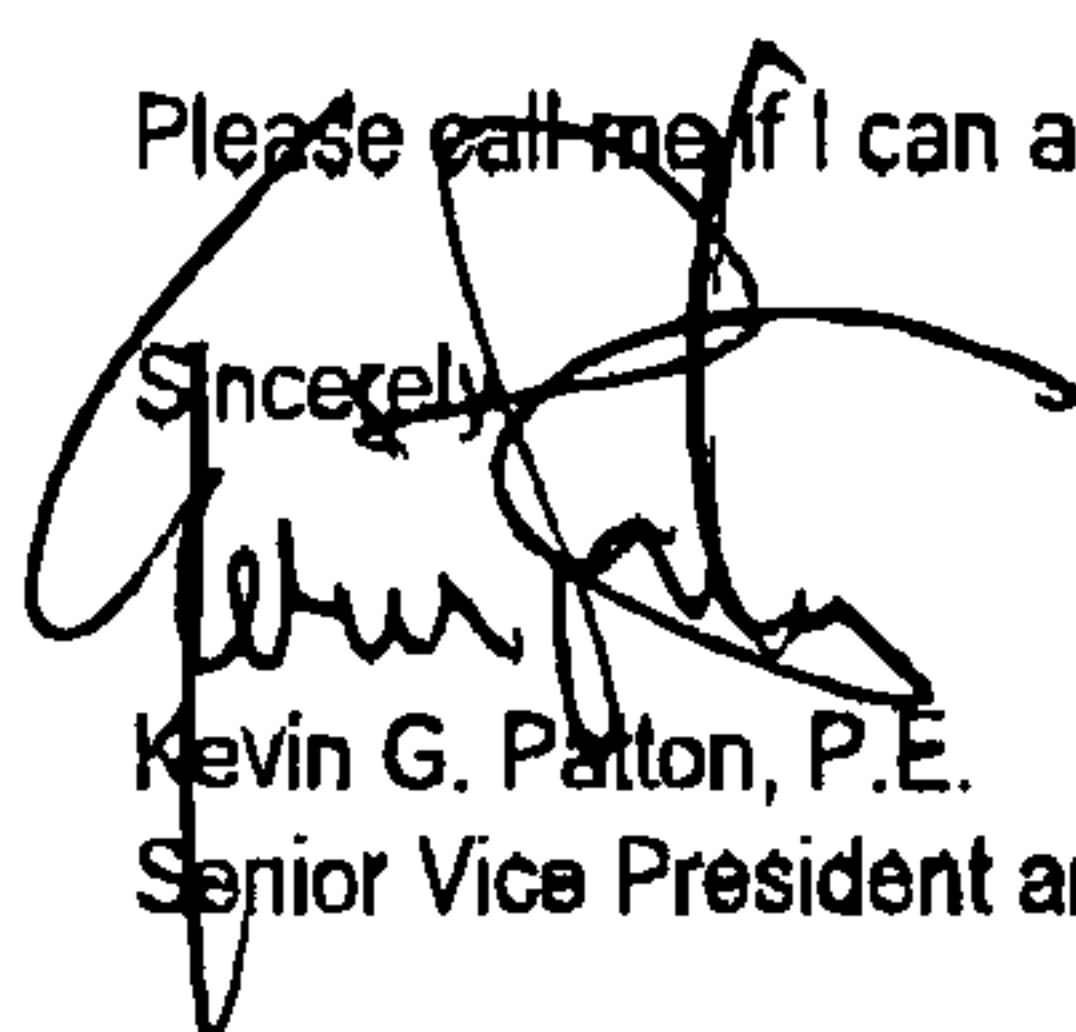 Please call me if I can a
Sincerely
Kevin G. Patton, P.E.
Senior Vice President ar